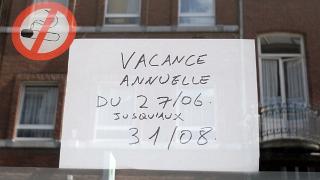 VACANCE
ANNUELLE
DU 27/06.
JUSQU'AUX
31/08.